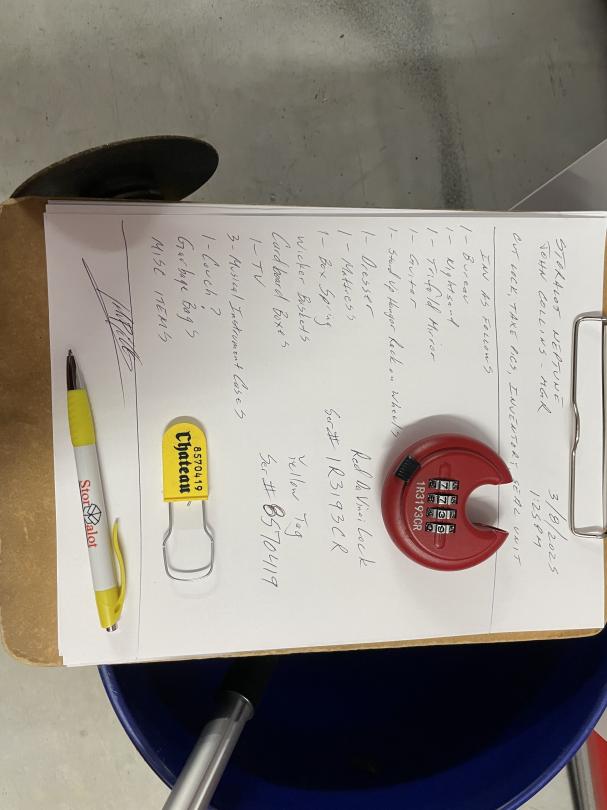 STORALOT NEPTUNE 3/8/2025
JOHN COLLINS - MGR 1:25PM
CUT LOCK, TAKE PICS, INVENTORY, SEAL UNIT
INV AS FOLLOWS
1- Bureau
1- Nightsand
1- Trifold Mirror
1- Guitar
1- Stand up Hanger Rack on Wheels
1- Dresser
1- Mattress
1- Box Spring
Wicker Baskets
Cardboard Boxes
1- TV
3- Musical Instrument Cases
1- Couch ?
Garbage Bags
MISC ITEMS
Red Da Vinci Lock
Ser# 1R3193CR
Yellow Tag
Ser# 8570419
1R3193CR
8570419
Chateau
Storalot